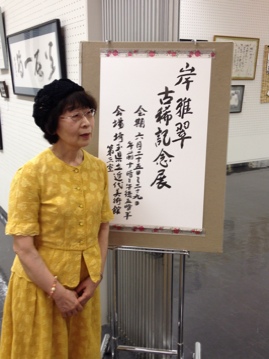 岸雅翠
古稀記念展
会期 六月二十五日~二十九日
午前十時~午後五時半
会場 埼玉県立近代美術館
第三室